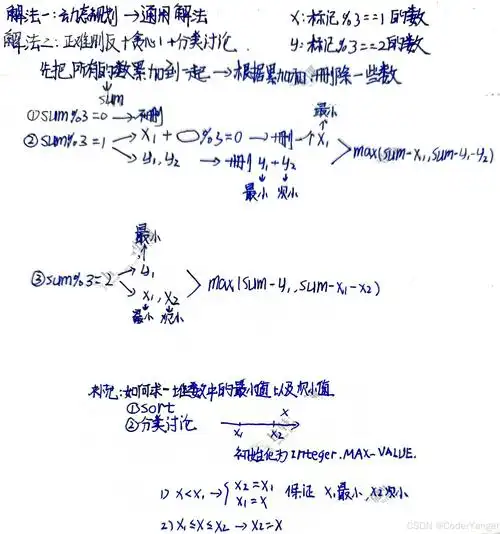 解法一:动态规划 → 通用解法
x:标记%3==1的数
解法二:正难则反+贪心+分类讨论.
y:标记%3==2的数
先把所有的数累加到一起 → 根据累加和删除一些数
sum
①sum%3=0 → 不删
最小
②sum%3=1 → x1 + %3=0 → 删 x1
→ y1,y2 → 删 y1+y2
max(sum-x1,sum-y1-y2)
最小 次小
最小
③sum%3=2 → y1
→ x1,x2
max(sum-y1,sum-x1-x2)
最小 次小
补充:如何求一堆数中的最小值以及次小值
①sort
②分类讨论
x
x1 x2
初始化为Integer.MAX-VALUE.
1) x<x1 → { x2=x1 x1=x 保证 x1最小,x2次小
2) x1≤x≤x2 → x2=x
CSDN @CoderYanger